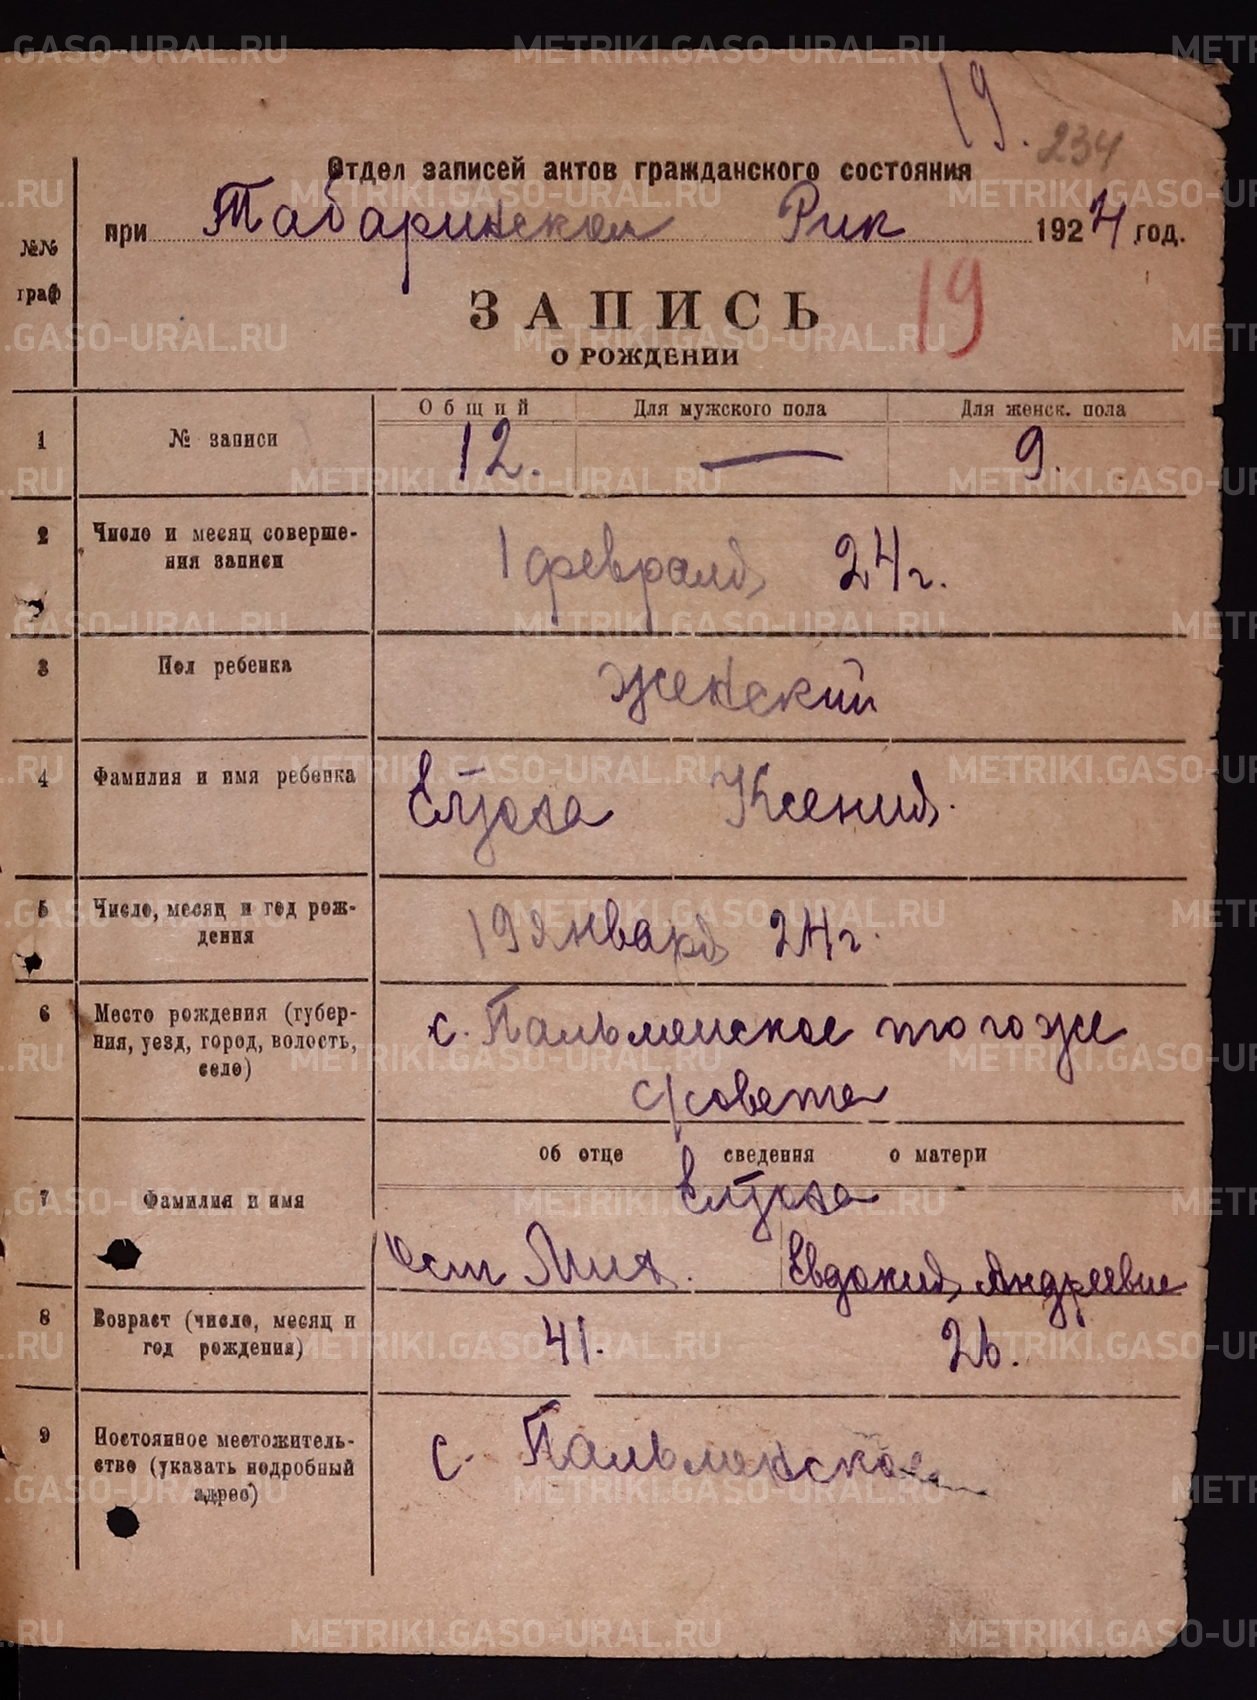 19.
234
Отдел записей актов гражданского состояния
при Табаринском Рик 1924 год.
№№
граф
ЗАПИСЬ
19
О РОЖДЕНИИ
Общий Для мужского пола Для женск. пола
1 № записи 12. — 9.
2 Число и месяц соверше-
ния записи
1 февраля 24 г.
3 Пол ребенка женский
4 Фамилия и имя ребенка Ксения.
5 Число, месяц и год рож-
дения
19 января 24 г.
6 Место рождения (губер-
ния, уезд, город, волость,
село)
с. Пальменское того же
с/совета
об отце сведения о матери
7 Фамилия и имя
Евдокия Андреевне
8 Возраст (число, месяц и
год рождения)
41. 26.
9 Постоянное местожитель-
ство (указать подробный
адрес)
с. Пальменское
METRIKI.GASO-URAL.RU